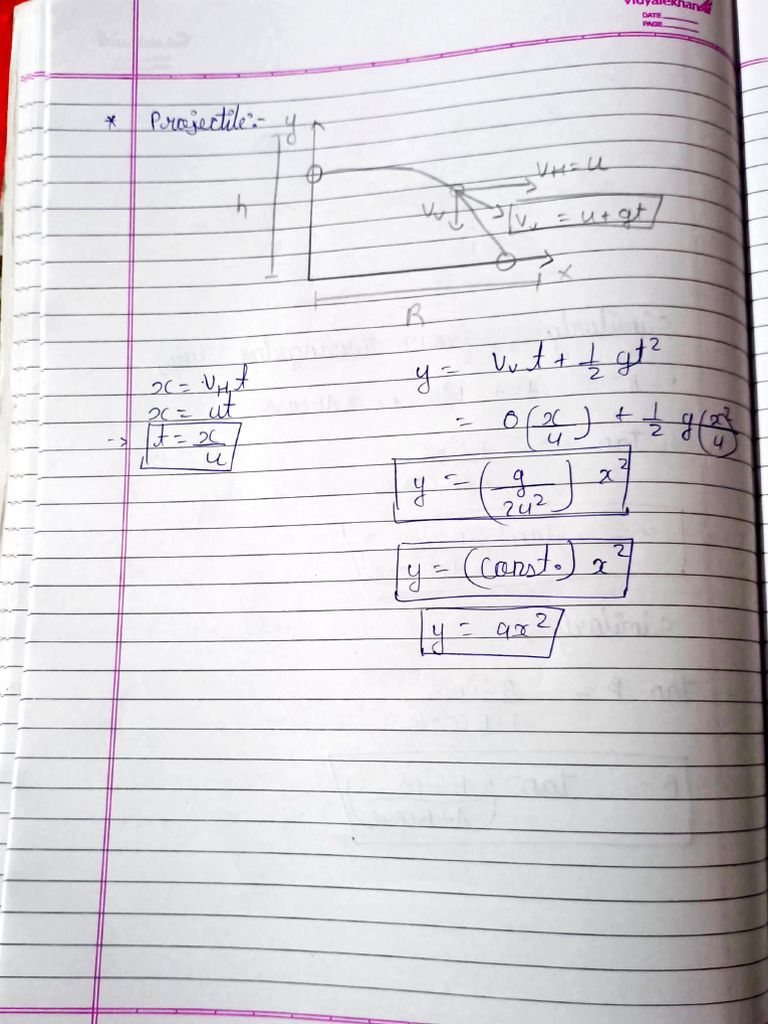 Vidyalekhan
DATE
PAGE
* Projectile:- y
h
V_H = u
V_v
V_v = u + gt
x
R
x = V_H t
x = ut
-> t = x/u
y = V_v t + 1/2 gt²
= 0(x/u) + 1/2 g(x²/u)
y = (g/2u²) x²
y = (const.) x²
y = ax²